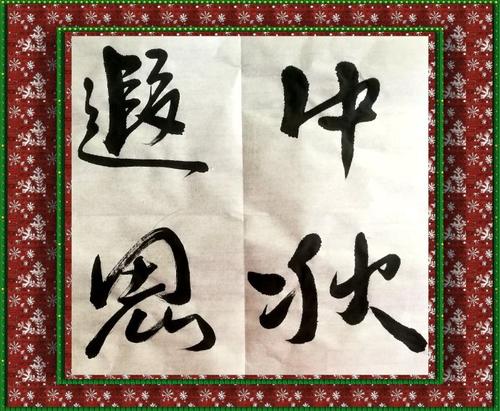 中秋
遐思